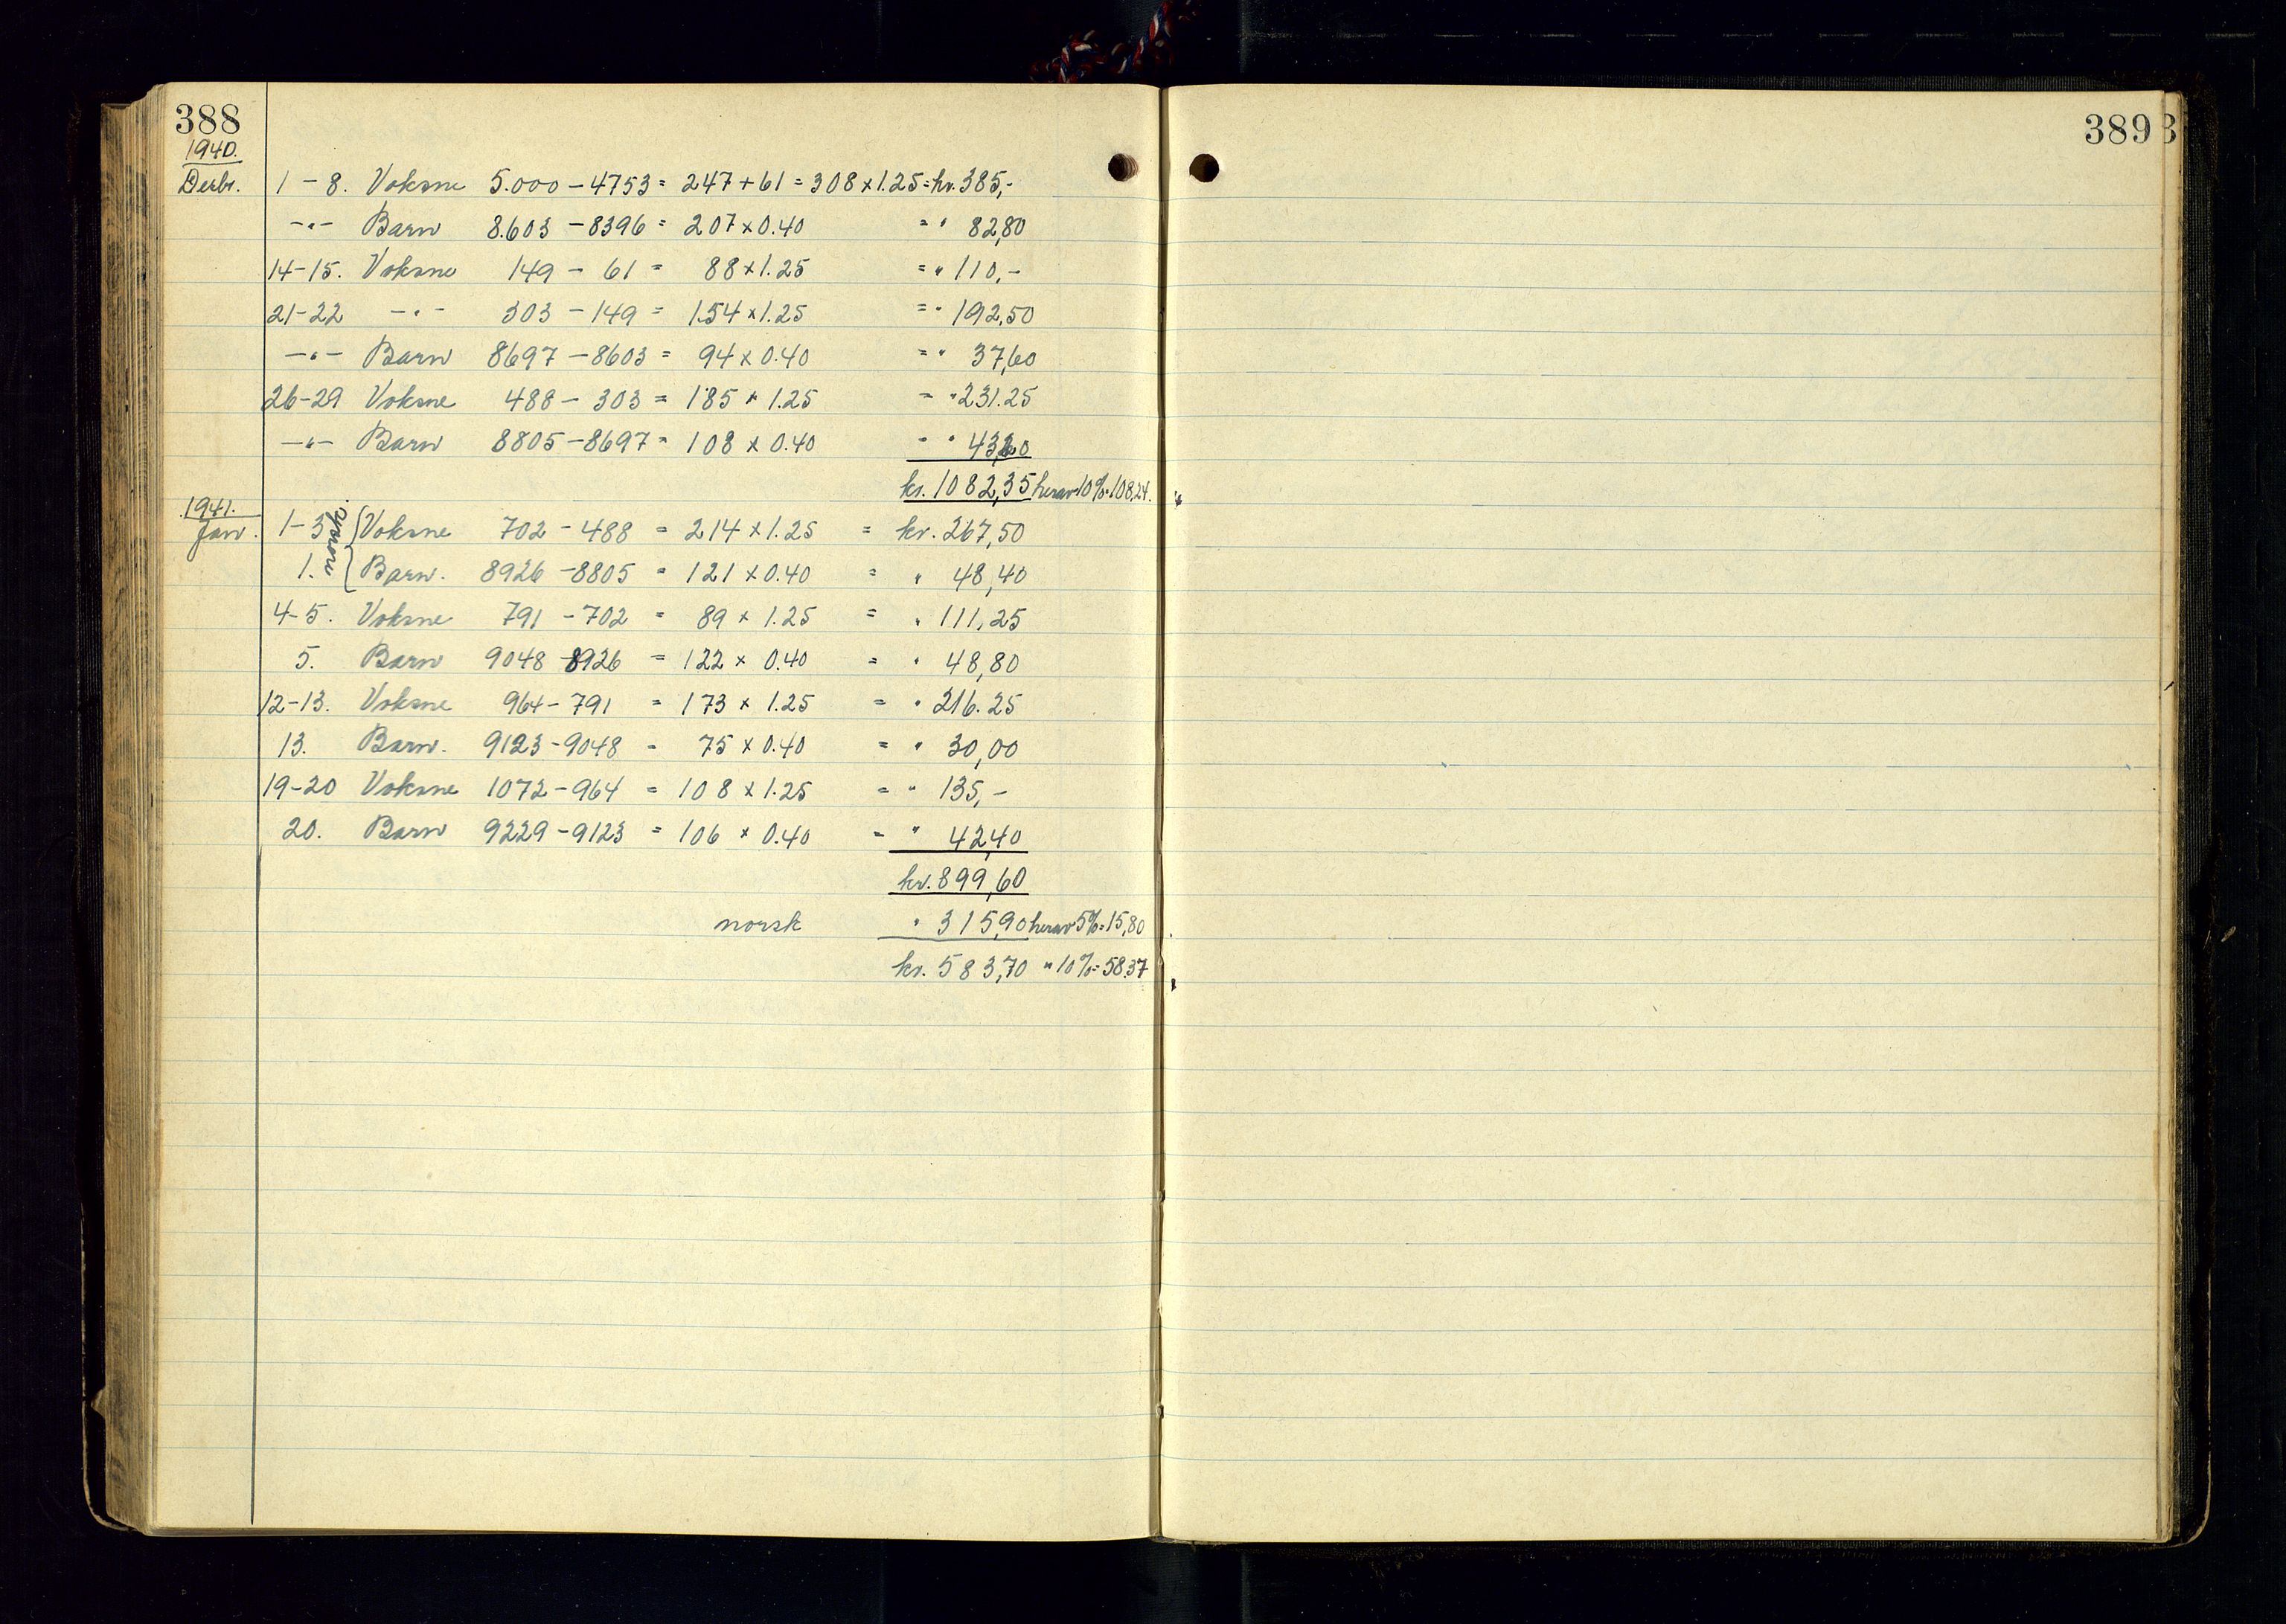 388
1940.
Desbr. 1 - 8. Voksne 5.000 - 4753 = 247 + 61 = 308 x 1.25 = kr. 385,-
-"- Barn 8.603 - 8396 = 207 x 0.40 = " 82,80
14-15. Voksne 149 - 61 = 88 x 1.25 = " 110,-
21-22 -"- 303 - 149 = 154 x 1.25 = " 192,50
-"- Barn 8697 - 8603 = 94 x 0.40 = " 37,60
26-29 Voksne 488 - 303 = 185 x 1.25 = " 231.25
-"- Barn 8805 - 8697 = 108 x 0.40 " " 43,20
kr. 1082,35 herav 10% = 108,24.
1941.
Jan. 1-3 norsk. Voksne 702 - 488 = 214 x 1.25 = kr. 267,50
1. Barn. 8926 - 8805 = 121 x 0.40 = " 48,40
4-5. Voksne 791 - 702 = 89 x 1.25 = " 111,25
5. Barn 9048 - 8926 = 122 x 0.40 = " 48,80
12-13. Voksne 964 - 791 = 173 x 1.25 = " 216.25
13. Barn. 9123 - 9048 = 75 x 0.40 = " 30,00
19-20 Voksne 1072 - 964 = 108 x 1.25 = " 135,-
20. Barn 9229 - 9123 = 106 x 0.40 = " 42,40
kr. 899,60
norsk " 315,90 herav 5% = 15,80
kr. 583,70 " 10% = 58.37
389